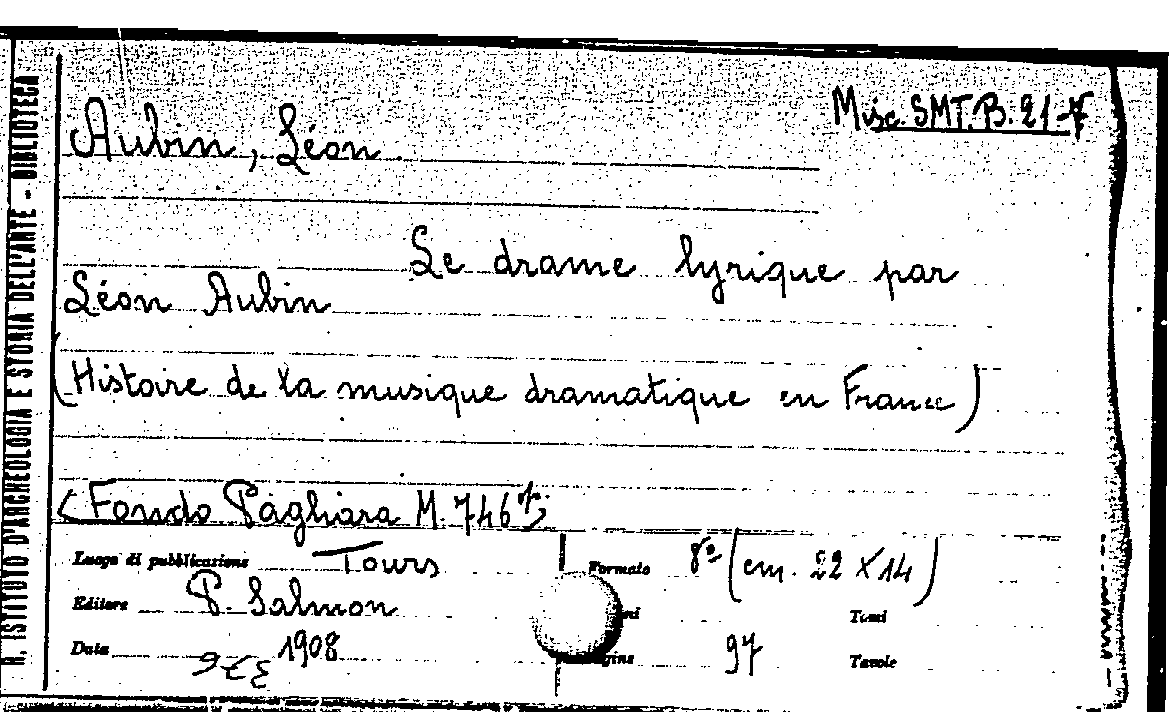 R. ISTITUTO D'ARCHEOLOGIA E STORIA DELL'ARTE - BIBLIOTECA
Misc. SMT. B. 21-7
Aubin, Léon
Le drame lyrique par
Léon Aubin
(Histoire de la musique dramatique en France)
Fondo Pagliara M. 746
Luogo di pubblicazione Tours Formato 8º (cm. 22 X 14)
Editore P. Salmon Tomi
Data 1908 97 Tavole